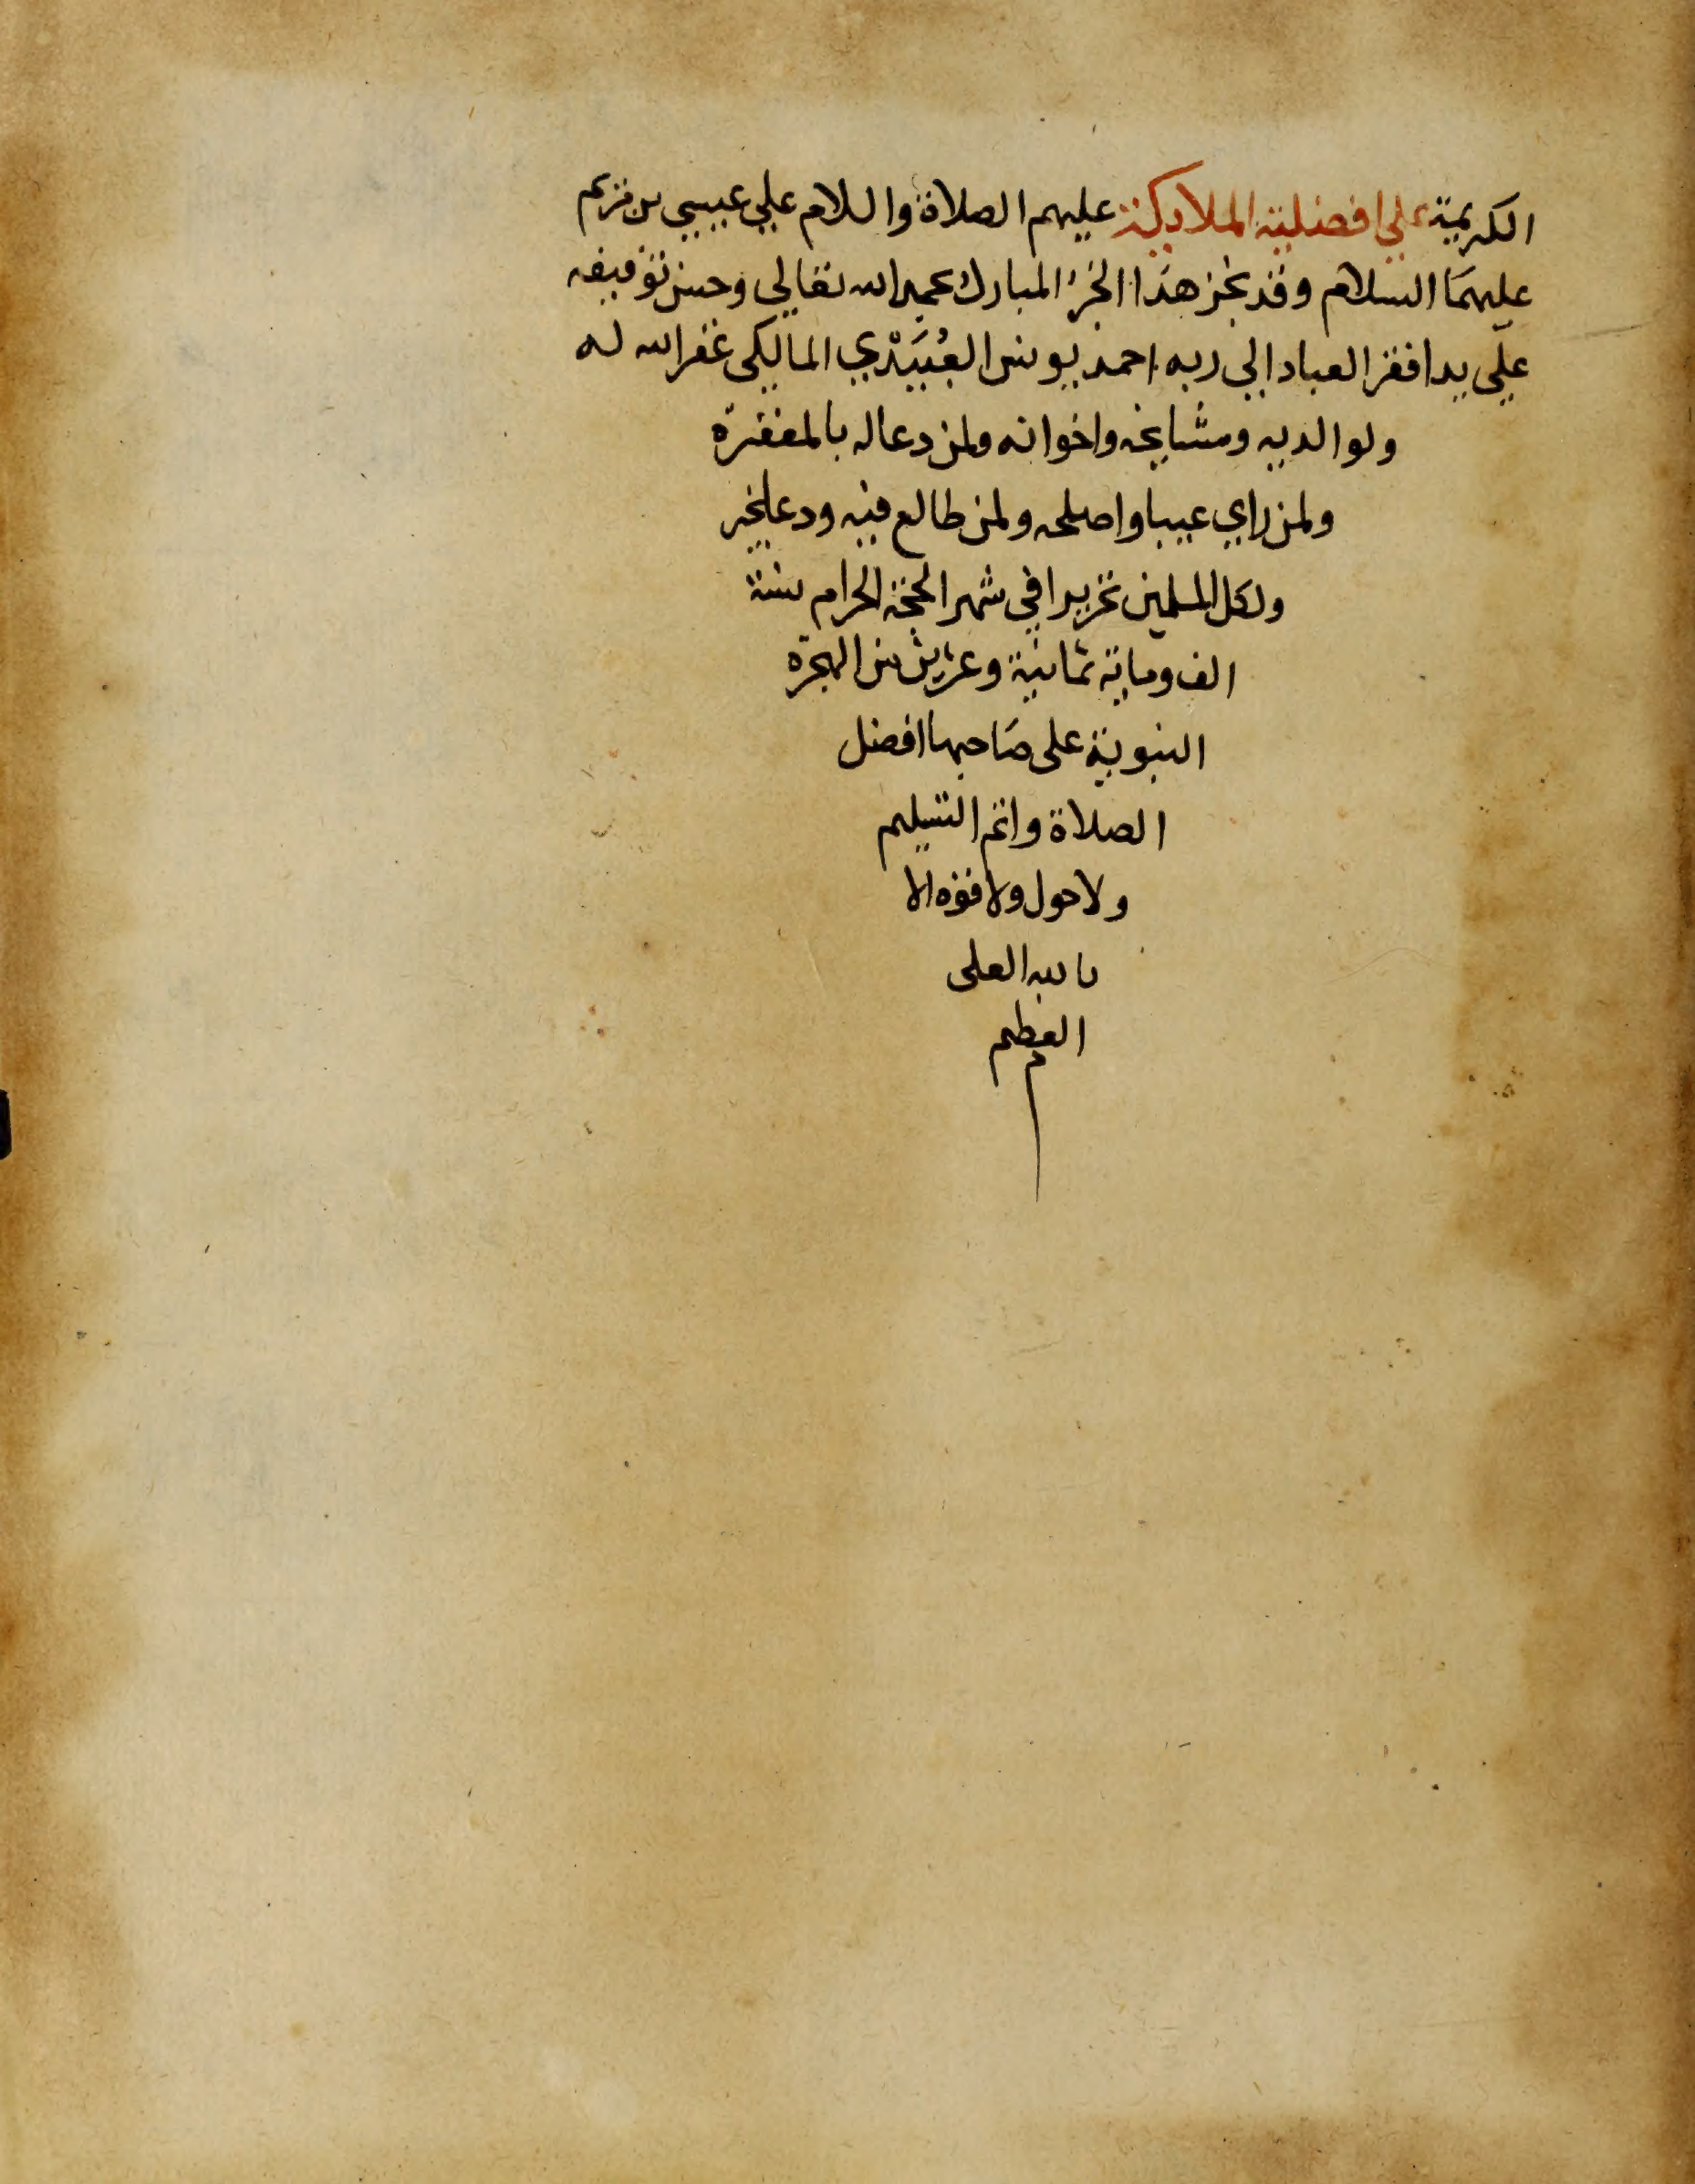 الكريمة علي افضلية الملايكة عليهم الصلاة والسلام علي عيسي بن مريم
عليهما السلام وقد نجز هذا الجزء المبارك بحمد الله تعالي وحسن توفيقه
علي يد افقر العباد الي ربه احمد يونس العُبَيْدي المالكي غفر الله له
ولوالديه ومشايخه واخوانه ولمن دعا له بالمغفرة
ولمن راي عيبا واصلحه ولمن طالع فيه ودعا بخير
ولكل المسلمين تحريرا في شهر الحجة الحرام سنة
الف وماية ثمانية وعشرين من الهجرة
النبوية على صاحبها افضل
الصلاة واتم التسليم
ولا حول ولا قوة الا
بالله العلى
العظيم
م